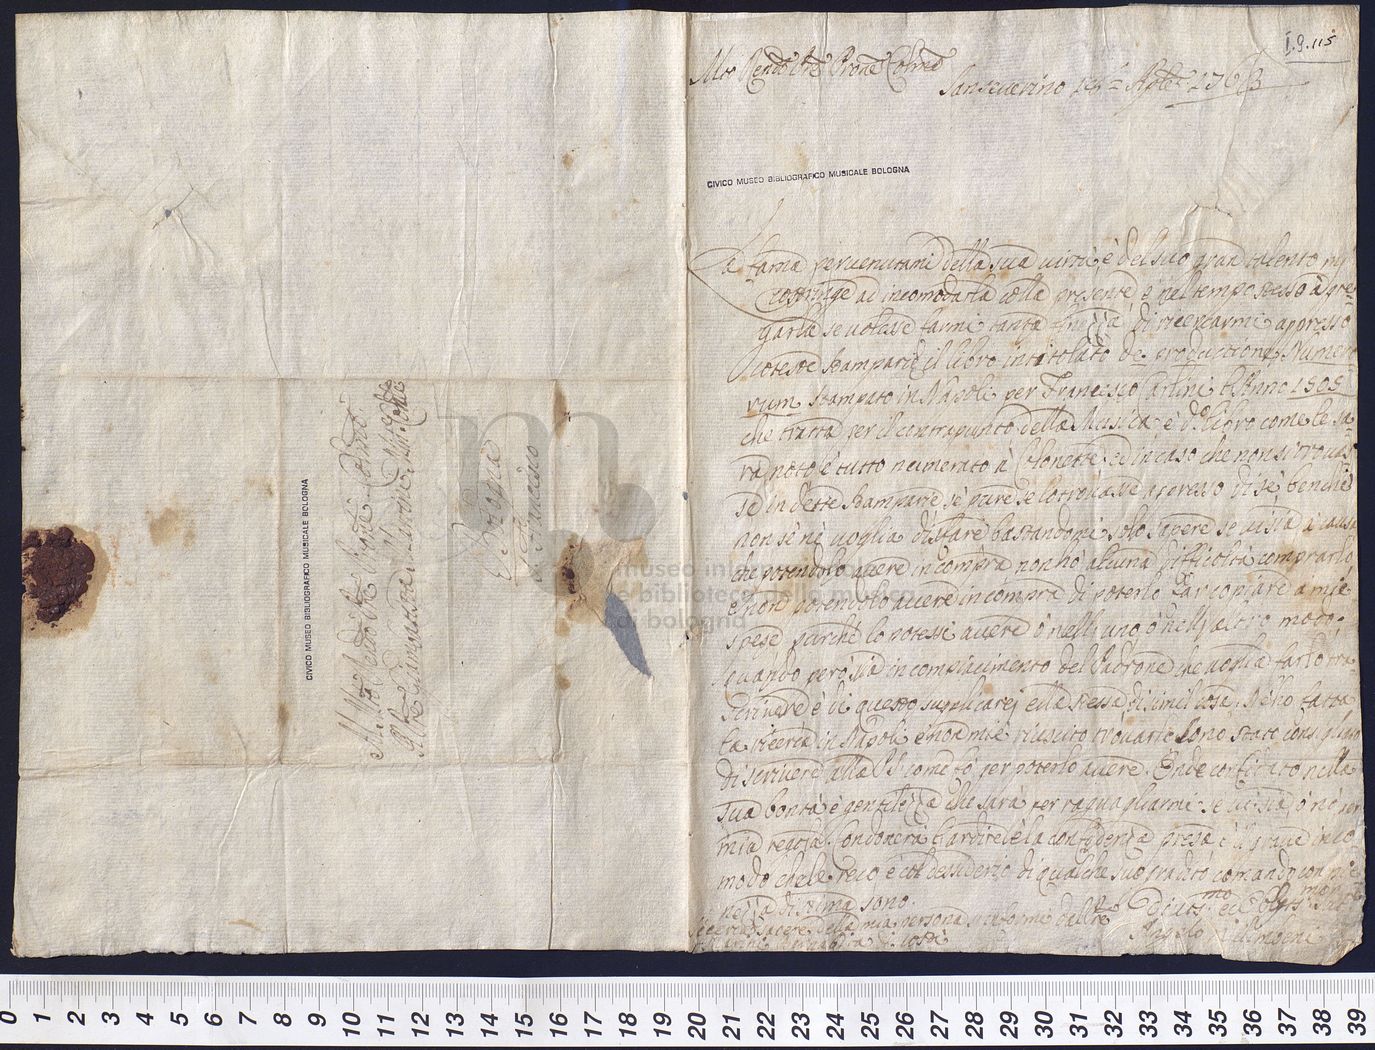 I.9.115
Mto Rendo Pre Prone Colmo
Sanseverino 7bre 1763
CIVICO MUSEO BIBLIOGRAFICO MUSICALE BOLOGNA
La fama pervenutami della sua virtù, è del suo gran talento mi
costringe ad incomodarla colla presente, e nel tempo stesso à pre
garla se volesse farmi tanta finezza di ricercarmi appresso
coteste stamparie il libro intitolato de productione Nume
rum stampato in Napoli per Francesco l'Anno 1508
che tratta per il contrapunto della Musica è do libro come le sa
rà noto è tutto numerato à Colonette, ed in caso che non si trovas
se in dette stamparie sè pure se lo trovasse appresso di sè, benchè
non se nè voglia disfare bastandomi solo sapere se vi sia à causa
che potendolo avere in compra non hò alcuna difficoltà comprarlo,
e non potendolo avere in compra di poterlo far copiare a mie
spese purchè lo potessi avere ò nell'uno, ò nell'altro modo
quando però sia in compiacimento del Padrone che voglia farlo tra
scrivere è di questo supplicarei ella stessa di simil cosa. Nè ho fatta
fa ricerca in Napoli è non mi è riuscito trovarlo sono stato consigliato
di scrivere alla come fò per poterlo avere. Onde confidato nella
sua bontà è gentilezza che sarà per raguagliarmi se vi sia, ò nò per
mia regola. Condonerà l'ardire è la confidenza presa è il grave inco
modo che le reco è col desiderio di qualche suo gradito comando con pie
nezza di stima sono.
sapere della mia persona s'informi dal Pre
Martini di costì
Divotmo ed Obbmo
Angelo
Al Mto Rendo Pre Sigre Prone Colmo
Il Pre Maestro Martini Min: Conle
Bologna
S. Francesco
CIVICO MUSEO BIBLIOGRAFICO MUSICALE BOLOGNA
m
museo internazionale
e biblioteca della musica
di bologna
0 1 2 3 4 5 6 7 8 9 10 11 12 13 14 15 16 17 18 19 20 21 22 23 24 25 26 27 28 29 30 31 32 33 34 35 36 37 38 39